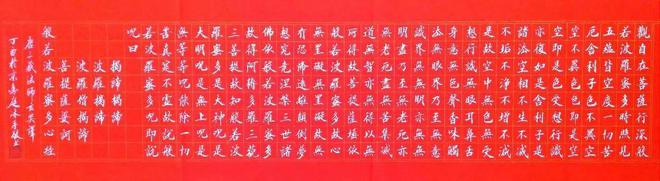 觀自在菩薩行深般
若波羅蜜多時照見
五蘊皆空度一切苦
厄舍利子色不異空
空不異色色即是空
空即是色受想行識
亦復如是舍利子是
諸法空相不生不滅
不垢不淨不增不減
是故空中無色無受
想行識無眼耳鼻舌
身意無色聲香味觸
法無眼界乃至無意
識界無無明亦無無
明盡乃至無老死亦
無老死盡無苦集滅
道無智亦無得以無
所得故菩提薩埵依
般若波羅蜜多故心
無罣礙無罣礙故無
有恐怖遠離顛倒夢
想究竟涅槃三世諸
佛依般若波羅蜜多
故得阿耨多羅三藐
三菩提故知般若波
羅蜜多是大神呪是
大明呪是無上呪是
無等等呪能除一切
苦真實不虛故說般
若波羅蜜多呪即說
呪曰
揭諦揭諦
波羅揭諦
波羅僧揭諦
菩提薩婆訶
般若波羅蜜多心經
唐三藏法師玄奘譯
丁酉